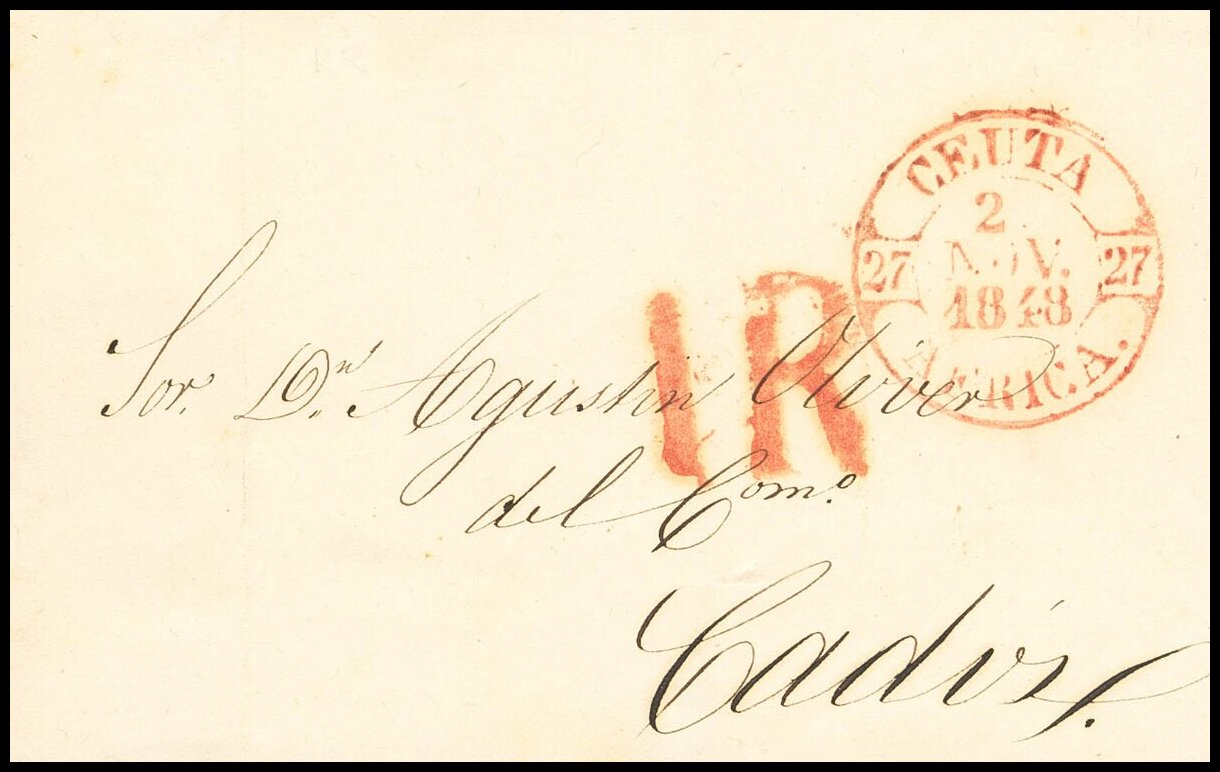 CEUTA
2
NOV.
1848
27 27
AFRICA.
1R
Sor. Dn. Agustin Oliver
del Como.
Cadiz.